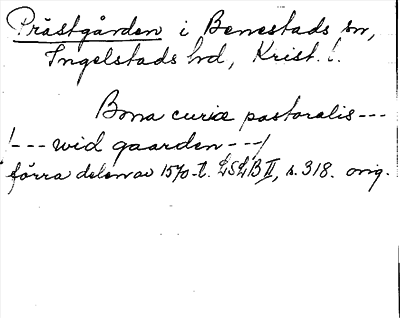 Prästgården i Benestads sn,
Ingelstads hd, Krist. l.
Bona curiæ pastoralis ---
/--- wid gaarden ---/
förra delen av 1570-t. LSLB II, s. 318. orig.